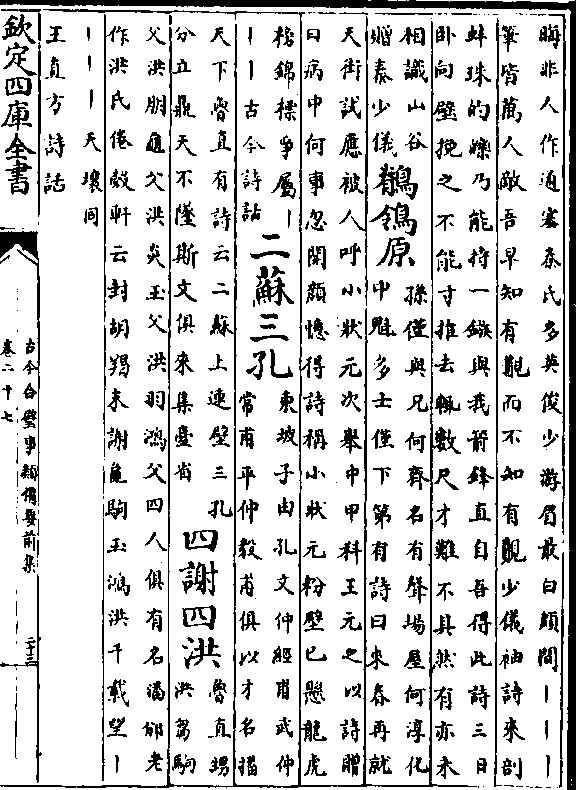 晦非人作通塞秦氏多英俊少游眉最白頗聞丨丨丨
筆皆萬人敵吾早知有覯而不知有覿少儀袖詩來剖
蚌珠的皪乃能持一鏃與我箭鋒直自吾得此詩三日
卧向壁挽之不能寸推去輒數尺才難不其然有亦未
相識山谷
贈秦少儀
鶺鴒原
孫僅與兄何齊名有聲場屋何淳化
中魁多士僅下第有詩曰來春再就
天街試應被人呼小狀元次舉中甲科王元之以詩贈
曰病中何事忽開顔憶得詩稱小狀元粉壁已懸龍虎
榜錦標爭屬丨
丨丨古今詩話
二蘇三孔
東坡子由孔文仲經甫武仲
常甫平仲毅甫俱以才名擅
天下魯直有詩云二蘇上連璧三孔
分立鼎天不墜斯文俱來集臺省
四謝四洪
魯直甥
洪芻駒
父洪朋龜父洪炎玉父洪羽鴻父四人俱有名潘邠老
作洪氏倦殼軒云封胡羯末謝龜駒玉鴻洪千載望丨
丨丨丨天壤同
王直方詩話
欽定四庫全書
古今合璧事類備要前集
卷二十七
二十三